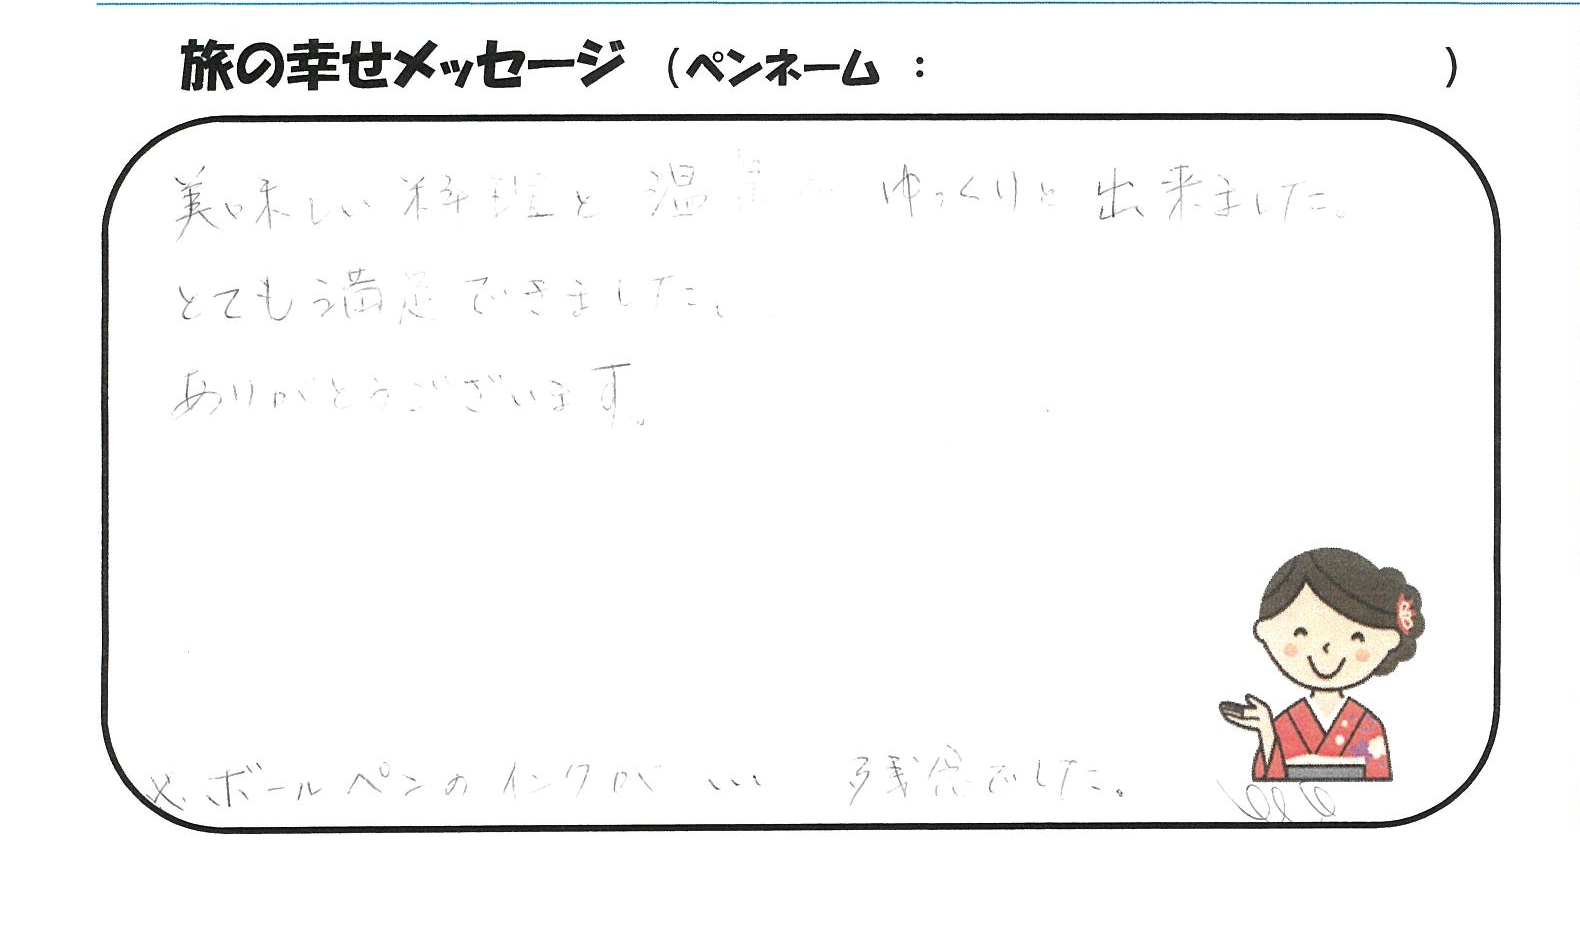 旅の幸せメッセージ (ペンネーム : )
美味しい料理と温泉で ゆっくりと出来ました。
とてもう満足できました。
ありがとうございます。
※ボールペンのインクが … 残念でした。